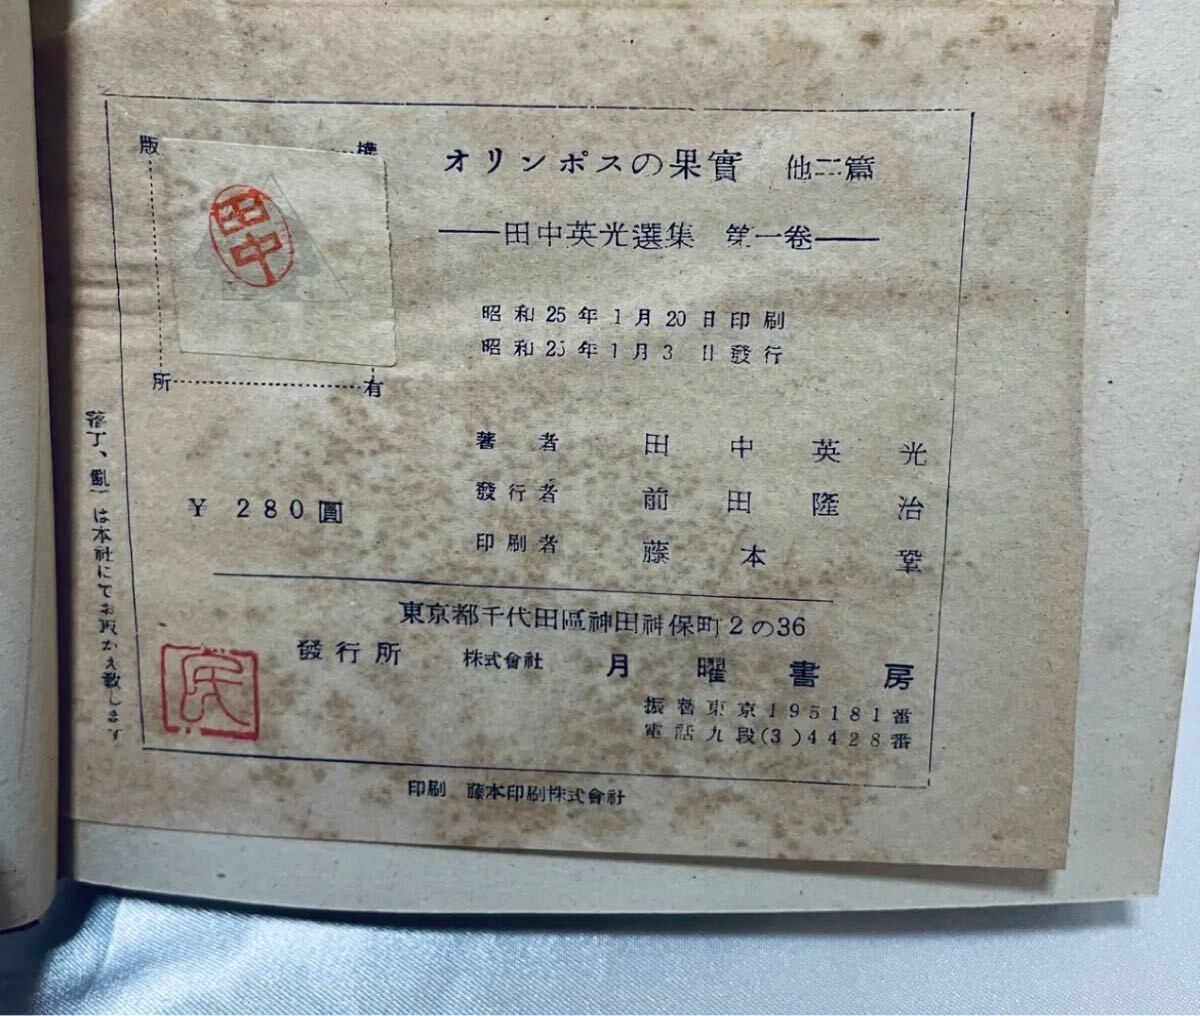 オリンポスの果實 他二篇
──田中英光選集 第一卷──
昭和25年1月20日印刷
昭和25年1月3 日發行
版權
所有
田中
¥ 280圓
著者 田中英光
發行者 前田隆治
印刷者 藤本
東京都千代田區神田神保町2の36
發行所 株式會社 月曜書房
振替東京195181番
電話九段(3)4428番
落丁、亂丁は本社にてお取かえ致します
印刷 藤本印刷株式會社